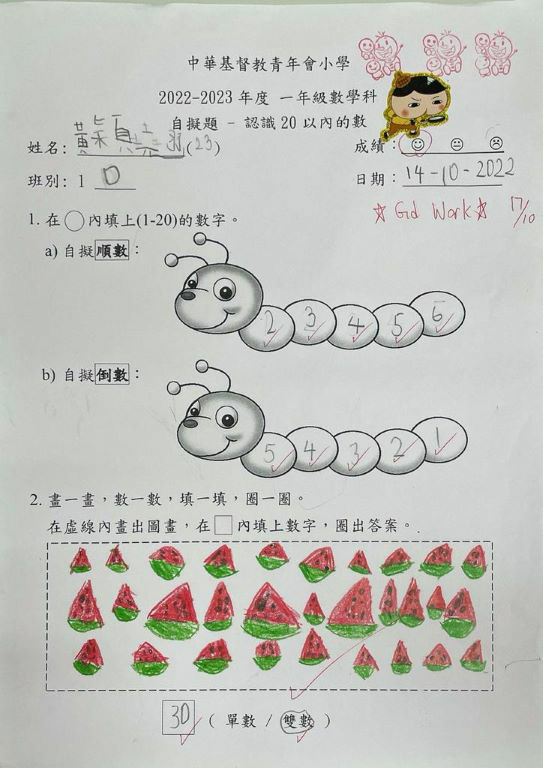 中華基督教青年會小學
2022-2023 年度 一年級數學科
自擬題 - 認識 20 以內的數
姓名: 黃 (23) 成績:
班別: 1 D 日期: 14-10-2022
☆ Gd Work ☆ 17/10
1. 在○內填上(1-20)的數字。
a) 自擬順數:
2 3 4 5 6
b) 自擬倒數:
5 4 3 2 1
2. 畫一畫,數一數,填一填,圈一圈。
在虛線內畫出圖畫,在□內填上數字,圈出答案。
30 ( 單數 / 雙數 )